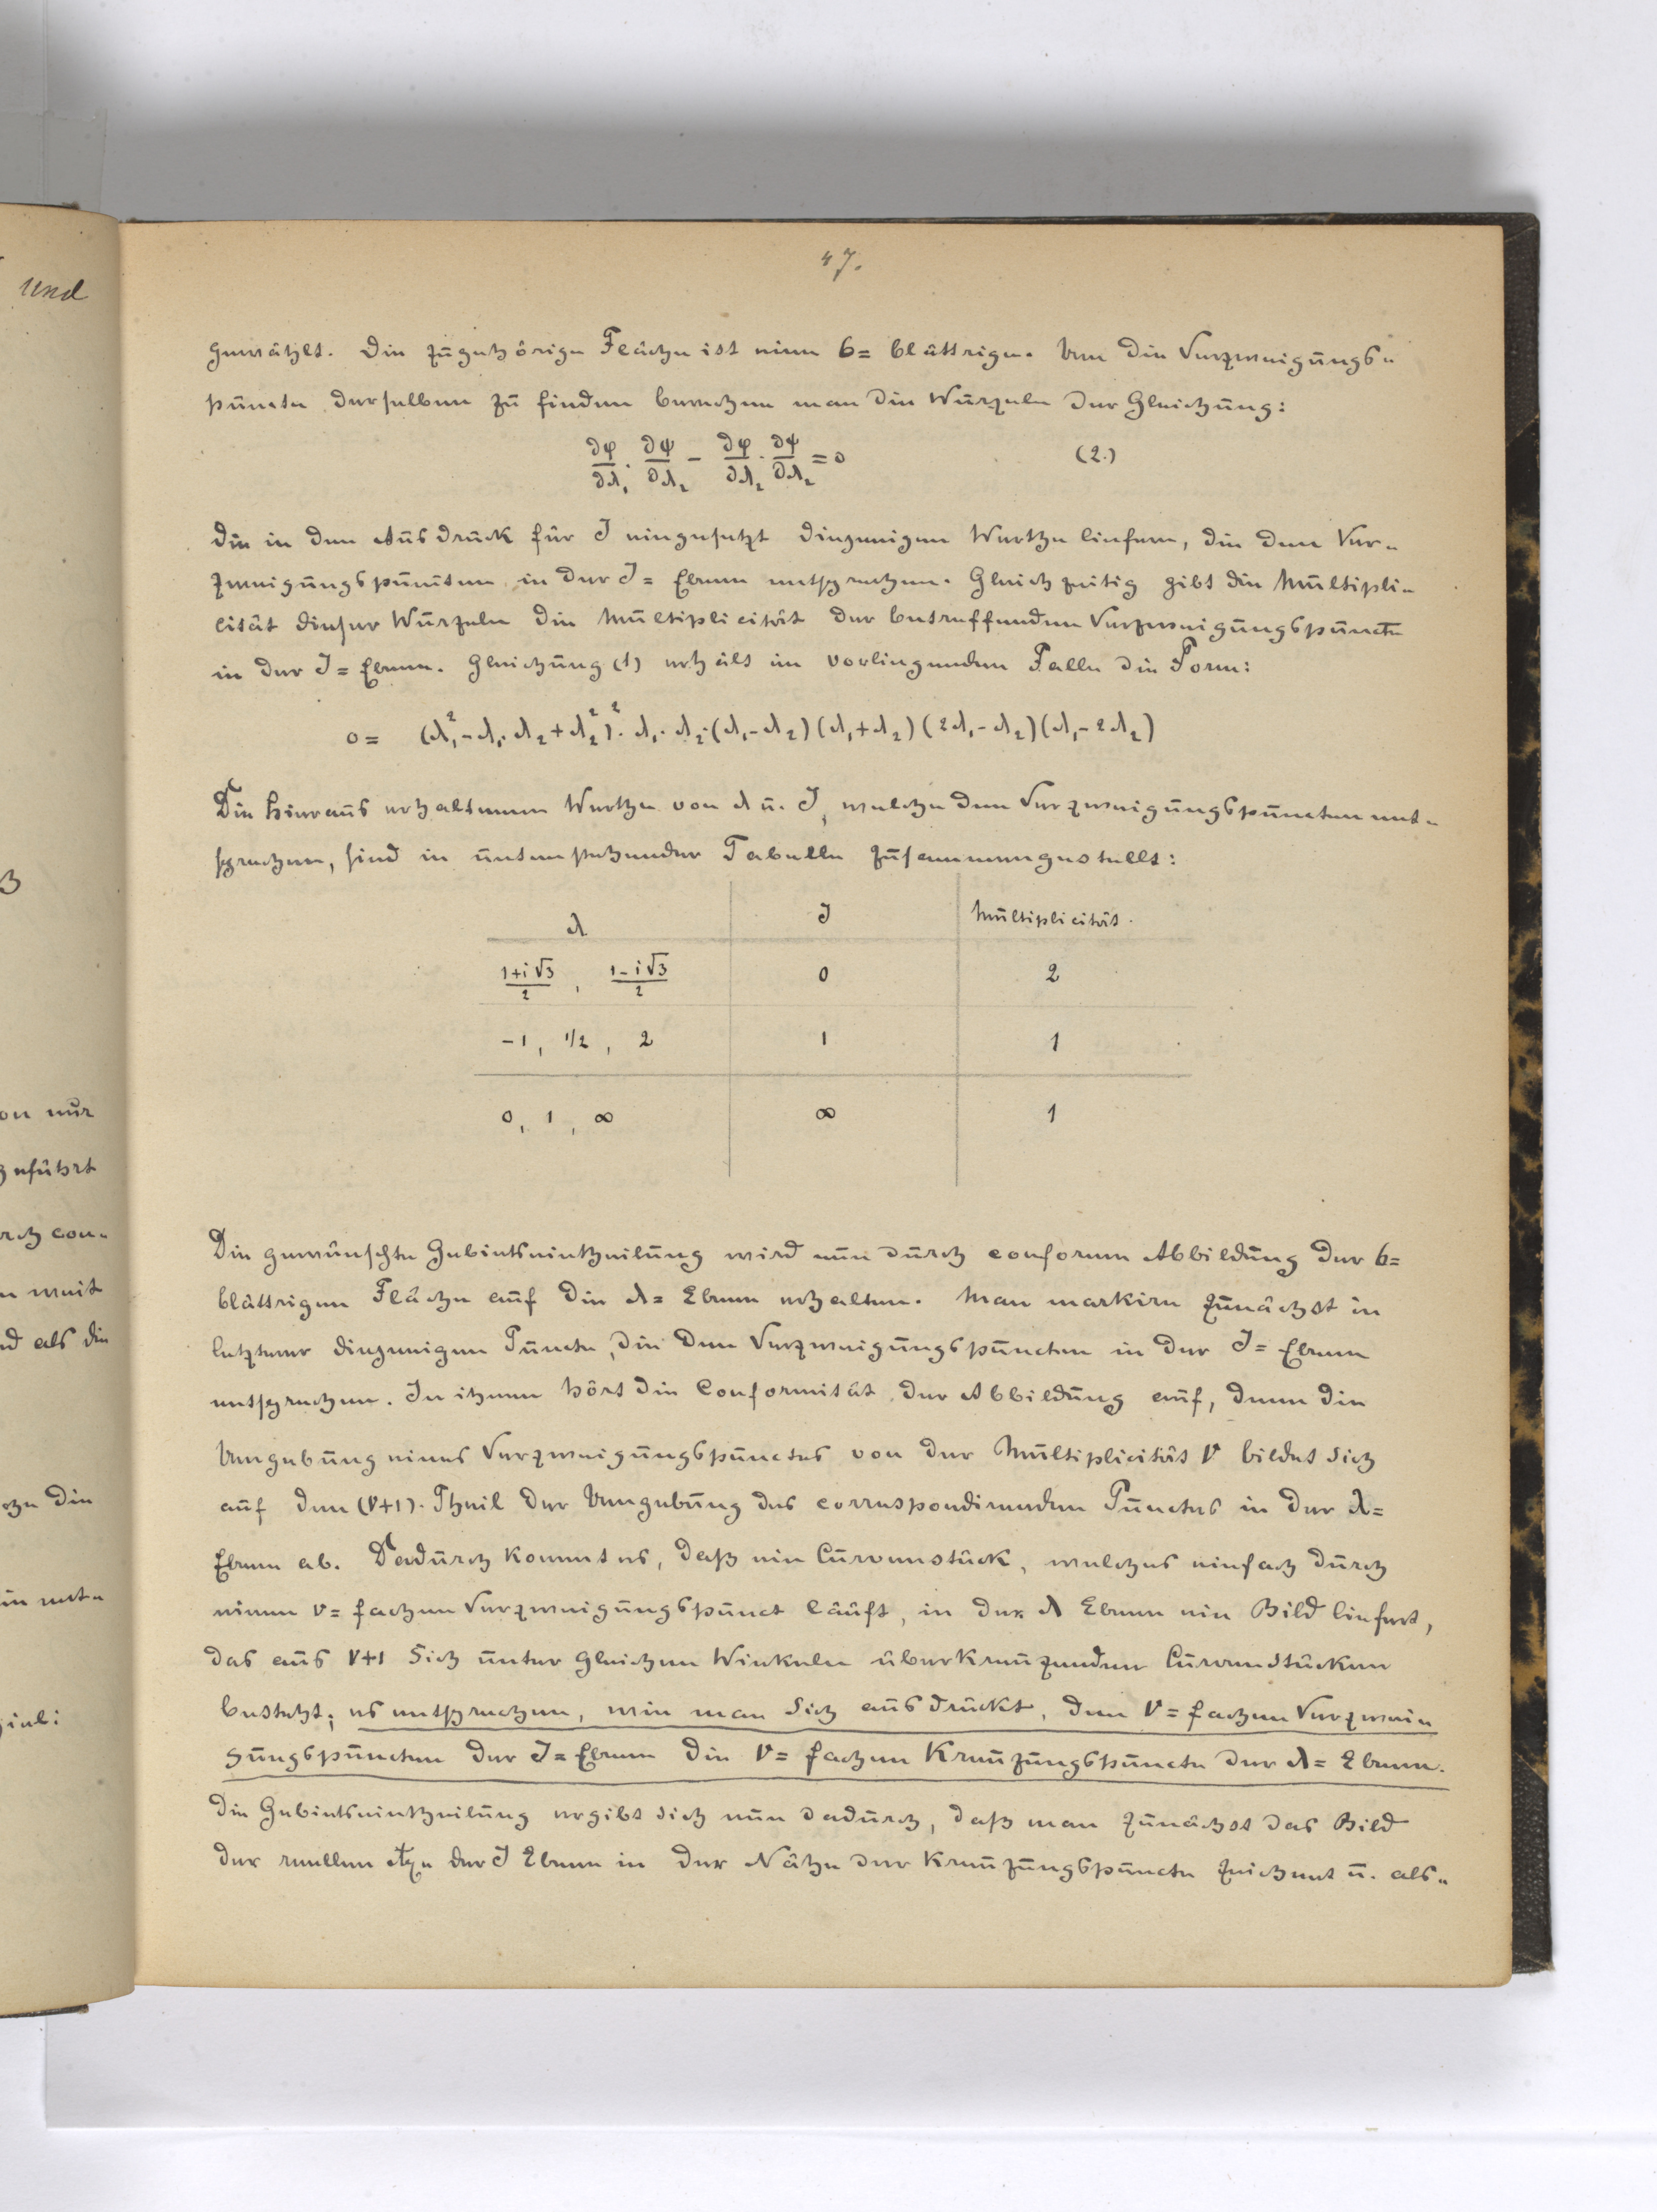 und
on nur
geführt
rch con-
n weit
nd als die
che die
in ent-
47.
gewählt. Die zugehörige Fläche ist eine 6= blättrige. Um die Verzweigungs-
puncte derselben zu finden berechne man die Wurzeln der Gleichung:
∂φ/∂λ₁ · ∂ψ/∂λ₂ - ∂φ/∂λ₂ · ∂ψ/∂λ₂ = 0 (2.)
die in den Ausdruck für J eingesetzt diejenigen Werthe liefern, die den Ver-
zweigungspunkten in der J= Ebene entsprechen. Gleichzeitig gibt die Multipli-
cität dieser Wurzeln die Multiplicität der betreffenden Verzweigungspuncte
in der J= Ebene. Gleichung (1) erhält im vorliegenden Falle die Form:
0 = (λ₁²-λ₁·λ₂+λ₂²)²·λ₁·λ₂·(λ₁-λ₂)(λ₁+λ₂)(2λ₁-λ₂)(λ₁-2λ₂)
Die hieraus erhaltenen Werthe von λ u. J, welche den Verzweigungspuncten ent-
sprechen, sind in untenstehender Tabelle zusammengestellt:
λ J Multiplicität.
(1+i√3)/2 , (1-i√3)/2 0 2
-1, 1/2, 2 1 1
0, 1, ∞ ∞ 1
Die gewünschte Gebietseintheilung wird nun durch conforme Abbildung der 6=
blättrigen Fläche auf die λ= Ebene erhalten. Man markire zunächst in
letzterer diejenigen Puncte, die den Verzweigungspuncten in der J= Ebene
entsprechen. In ihnen hört die Conformität der Abbildung auf, denn die
Umgebung eines Verzweigungspunctes von der Multiplicität ν bildet sich
auf den (ν+1). Theil der Umgebung des correspondirenden Punctes in der λ=
Ebene ab. Dadurch kommt es, daß ein Curvenstück, welches einfach durch
einen ν= fachen Verzweigungspunct läuft, in der λ Ebene ein Bild liefert,
das aus ν+1 sich unter gleichen Winkeln überkreuzenden Curvenstücken
besteht; es entsprechen, wie man sich ausdrückt, den ν= fachen Verzwei-
gungspuncten der J= Ebene die ν= fachen Kreuzungspuncte der λ= Ebene.
Die Gebietseintheilung ergibt sich nun dadurch, daß man zunächst das Bild
der reellen Axe der J Ebene in der Nähe der Kreuzungspuncte zeichnet u. als-